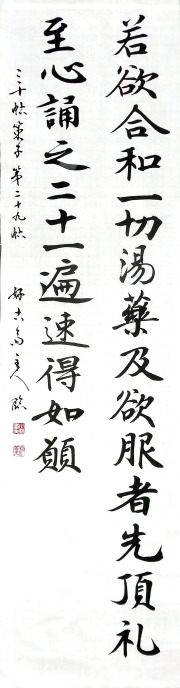 若欲合和一切湯藥及欲服者先頂礼
至心誦之二十一遍速得如願
三十帖策子第二十九帖 好古斋主人臨